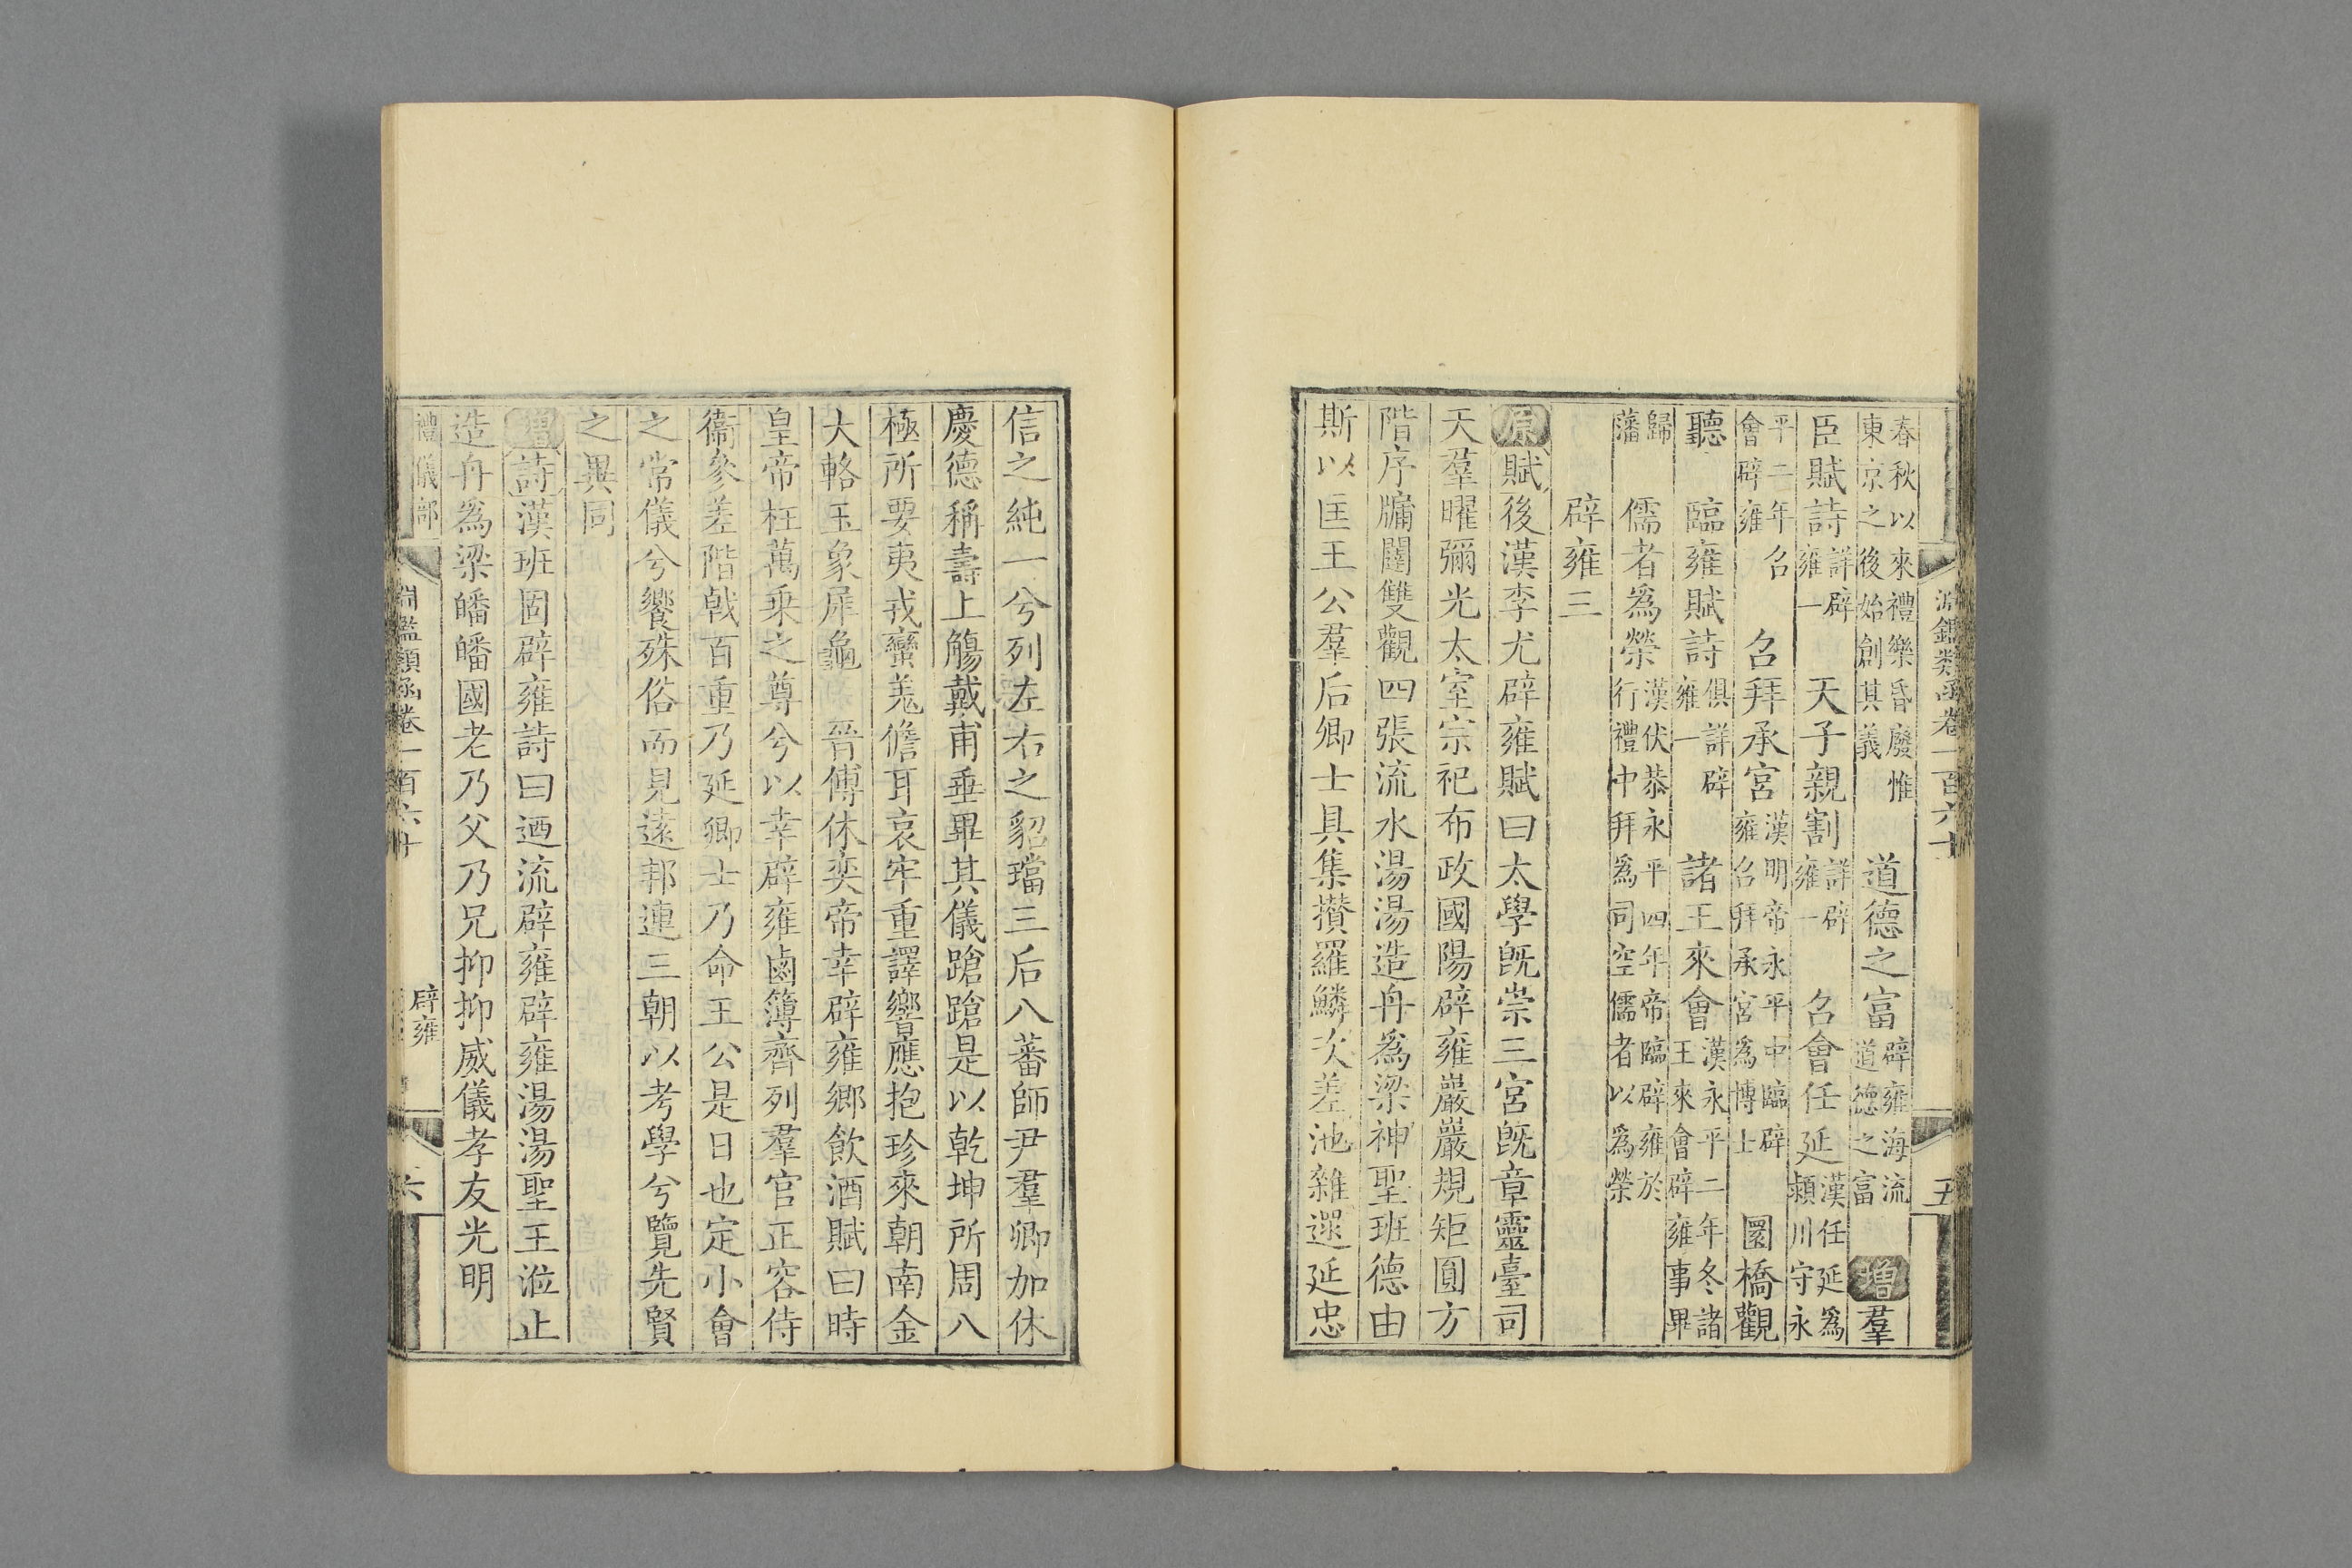 淵鑑類函卷一百六十
五
春秋以來禮樂昏廢惟東京之後始創其義　道德之富辟雍海流道德之富　增羣
臣賦詩詳辟雍一　天子親割詳辟雍一　召會任延漢任延爲潁川守永
平二年召會辟雍　召拜承宮漢明帝永平中臨辟雍召拜承宮爲博士　圜橋觀
聽　臨雍賦詩俱詳辟雍一　諸王來會漢永平二年冬諸王來會辟雍事畢
歸藩　儒者爲榮漢伏恭永平四年帝臨辟雍於行禮中拜爲司空儒者以爲榮
辟雍三
原賦後漢李尤辟雍賦曰太學旣崇三宮旣章靈臺司
天羣曜彌光太室宗祀布政國陽辟雍巖巖規矩圓方
階序牖闥雙觀四張流水湯湯造舟爲梁神聖班德由
斯以匡王公羣后卿士具集攅羅鱗次差池雜遝延忠
信之純一兮列左右之貂璫三后八蕃師尹羣卿加休
慶德稱壽上觴戴甫垂畢其儀蹌蹌是以乾坤所周八
極所要夷戎蠻羗儋耳哀牢重譯響應抱珍來朝南金
大輅玉象犀龜　晉傅休奕帝幸辟雍鄉飲酒賦曰時
皇帝枉萬乗之尊兮以幸辟雍鹵簿齊列羣官正容侍
衞參差階戟百重乃延卿士乃命王公是日也定小會
之常儀兮饗殊俗而見遠邦連三朝以考學兮覽先賢
之異同
增詩漢班固辟雍詩曰迺流辟雍辟雍湯湯聖王涖止
造舟爲梁皤皤國老乃父乃兄抑抑威儀孝友光明
禮儀部
淵鑑類函卷一百六十
辟雍
六